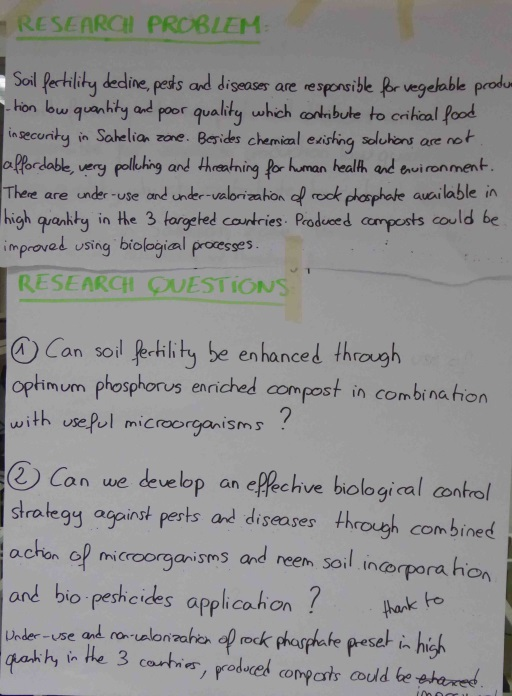 RESEARCH PROBLEM:
Soil fertility decline, pests and diseases are responsible for vegetable produc
-tion low quantity and poor quality which contribute to critical food
insecurity in Sahelian zone. Besides chemical existing solutions are not
affordable, very polluting and threatning for human health and environment.
There are under-use and under-valorization of rock phosphate available in
high quantity in the 3 targeted countries. Produced composts could be
improved using biological processes.
RESEARCH QUESTIONS
① Can soil fertility be enhanced through
optimum phosphorus enriched compost in combination
with useful microorganisms ?
② Can we develop an effective biological control
strategy against pests and diseases through combined
action of microorganisms and neem soil incorporation
and bio-pesticides application ?
thank to
Under-use and non-valorization of rock phasphate preset in high
quantity in the 3 countries, produced composts could be